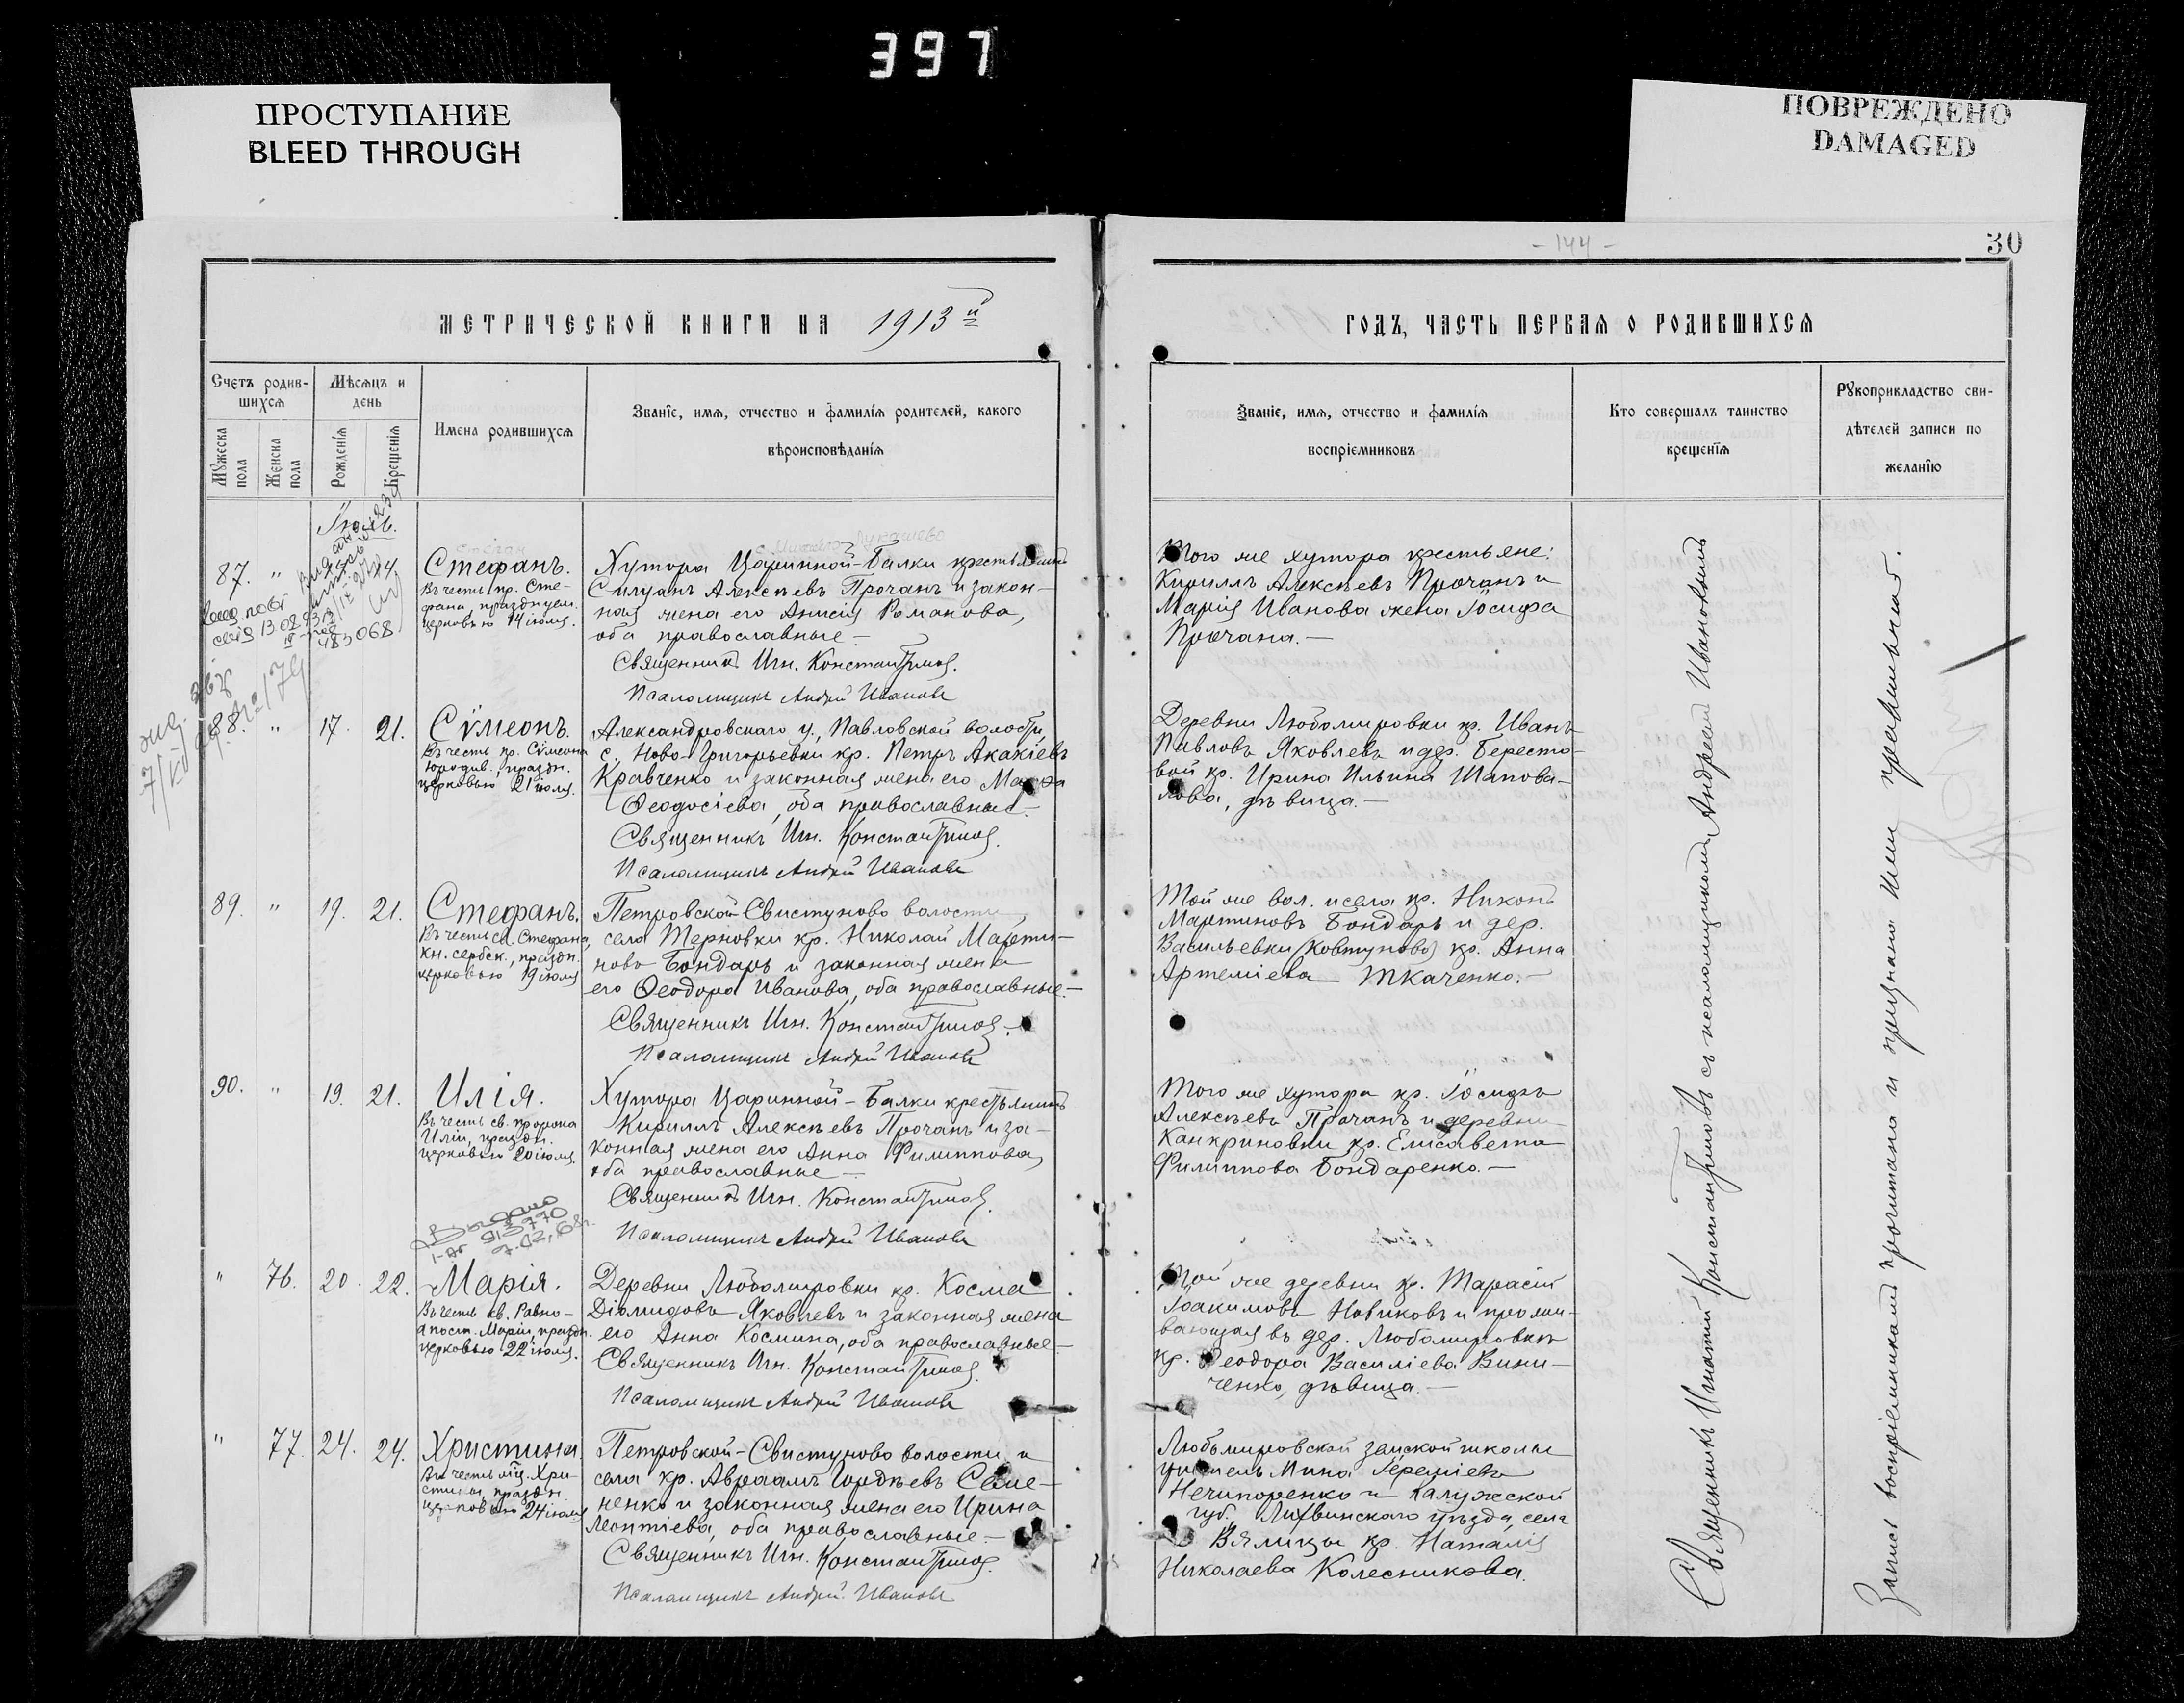 397
ПРОСТУПАНИЕ
BLEED THROUGH
ПОВРЕЖДЕНО
DAMAGED
- 144 -
30
МЕТРИЧЕСКОЙ КНИГИ НА 1913й
Счетъ родив-
шихся
Мужеска
пола
Женска
пола
Мѣсяцъ и
день
Рожденія
Крещенія
Имена родившихся
Званіе, имя, отчество и фамилія родителей, какого
вѣроисповѣданія
Іюль.
87. "
14.
Стефанъ.
Въ честь пр. Сте-
фана, празднуем.
церковью 14 іюля.
Хутора Царинной-Балки крестьянинъ
Силуанъ Алексѣевъ Прочанъ и закон-
ная жена его Анисія Романова,
оба православные —
Священникъ Игн. Константиновъ.
Псаломщикъ Андрей Ивановъ
483068
88. " 17. 21.
Сѵмеонъ.
Въ честь пр. Сѵмеона
Юродив., праздн.
церковью 21 іюля.
Александровскаго у., Павловской волости,
с. Ново-Григорьевки кр. Петръ Акакіевъ
Кравченко и законная жена его Марѳа
Ѳеодосіева, оба православные —
Священникъ Игн. Константиновъ.
Псаломщикъ Андрей Ивановъ
89. " 19. 21.
Стефанъ.
Въ честь св. Стефана,
кн. сербск., праздн.
церковью 19 іюля
Петровской-Свистуново волости,
села Терновки кр. Николай Марти-
новъ Бондарь и законная жена
его Ѳеодора Иванова, оба православные. —
Священникъ Игн. Константиновъ.
Псаломщикъ Андрей Ивановъ
90. " 19. 21.
Илія.
Въ честь св. пророка
Иліи, праздн.
церковью 20 іюля.
Хутора Царинной-Балки крестьянинъ
Кириллъ Алексѣевъ Прочанъ и за-
конная жена его Анна Филиппова,
оба православные —
Священникъ Игн. Константиновъ.
Псаломщикъ Андрей Ивановъ
" 76. 20. 22.
Марія.
Въ честь св. Равно-
апост. Маріи, праздн.
церковью 22 іюля.
Деревни Любомировки кр. Косма
Діомидовъ Яковлевъ и законная жена
его Анна Космина, оба православные —
Священникъ Игн. Константиновъ.
Псаломщикъ Андрей Ивановъ
" 77. 24. 24.
Христина.
Въ честь мц. Хри-
стины, праздн.
церковью 24 іюля
Петровской-Свистуново волости и
села кр. Авраамъ Гордѣевъ Семе-
ненко и законная жена его Ирина
Леонтіева, оба православные. —
Священникъ Игн. Константиновъ.
Псаломщикъ Андрей Ивановъ
ГОДЪ, ЧАСТЬ ПЕРВАЯ О РОДИВШИХСЯ
Званіе, имя, отчество и фамилія
воспріемниковъ
Кто совершалъ таинство
крещенія
Рукоприкладство сви-
дѣтелей записи по
желанію
Того же хутора крестьяне:
Кириллъ Алексѣевъ Прочанъ и
Марія Иванова жена Іосифа
Прочана. —
Деревни Любомировки кр. Иванъ
Павловъ Яковлевъ и дер. Бересто-
вой кр. Ирина Ильина Шапова-
лова, дѣвица. —
Той же вол. и села кр. Никонъ
Мартиновъ Бондарь и дер.
Васильевки (Ковтуново) кр. Анна
Артеміева Ткаченко. —
Того же хутора кр. Іосифъ
Алексѣевъ Прочанъ и деревни
Канкриновки кр. Елисавета
Филиппова Бондаренко. —
Той же деревни кр. Тарасій
Іоакимовъ Новиковъ и прожи-
вающая въ дер. Любомировкѣ
кр. Ѳеодора Василіева Вини-
ченко, дѣвица. —
Любомировской земской школы
учитель Мина Іереміевъ
Нечипоренко и Калужской
губ. Лихвинскаго уѣзда, села
Вялицы кр. Наталія
Николаева Колесникова.
Священникъ Игнатій Константиновъ съ псаломщикомъ Андреемъ Ивановымъ
Запись воспріемниками прочитана и признана ими правильною.